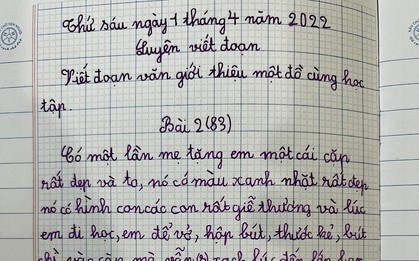 Thứ sáu ngày 1 tháng 4 năm 2022
Luyện viết đoạn
Viết đoạn văn giới thiệu một đồ cùng học
tập.
Bài 2 (83)
Có một lần mẹ tặng em một cái cặp
rất đẹp và to, nó có màu xanh nhật rất đẹp
nó có hình con các con rất giễ thương và lúc
em đi học, em để vở, hộp bút, thước kẻ, bút
chì vào cặp mà vẫn